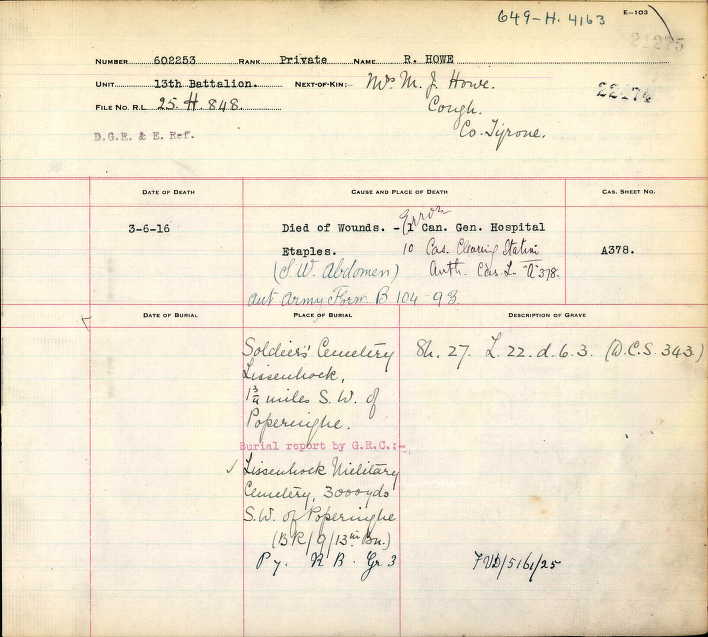 649-H. 4163
E-103
21275
NUMBER 602253 RANK Private NAME R. HOWE
UNIT 13th Battalion. NEXT-OF-KIN:- Mrs M. J. Howe.
22174
FILE NO. R.L. 25.H.848.
Cough.
Co. Tyrone.
D.G.R. & E. Ref.
DATE OF DEATH CAUSE AND PLACE OF DEATH CAS. SHEET NO.
Error
3-6-16 Died of Wounds. - (1 Can. Gen. Hospital
Etaples. 10 Cas. Clearing Station A378.
(S.W. Abdomen) Auth. Cas. L. "A" 378.
Aut Army Form B 104-93
DATE OF BURIAL PLACE OF BURIAL DESCRIPTION OF GRAVE
Soldiers' Cemetery Sh. 27. L. 22. d. 6. 3. (D.C.S. 343.)
Lissenhock,
1 3/4 miles S.W. of
Poperinghe.
Burial report by G.R.C.:-
✓ Lissenhock Military
Cemetery, 3000 yds
S.W. of Poperinghe
(BR/9/13th Bn.)
Gr 3